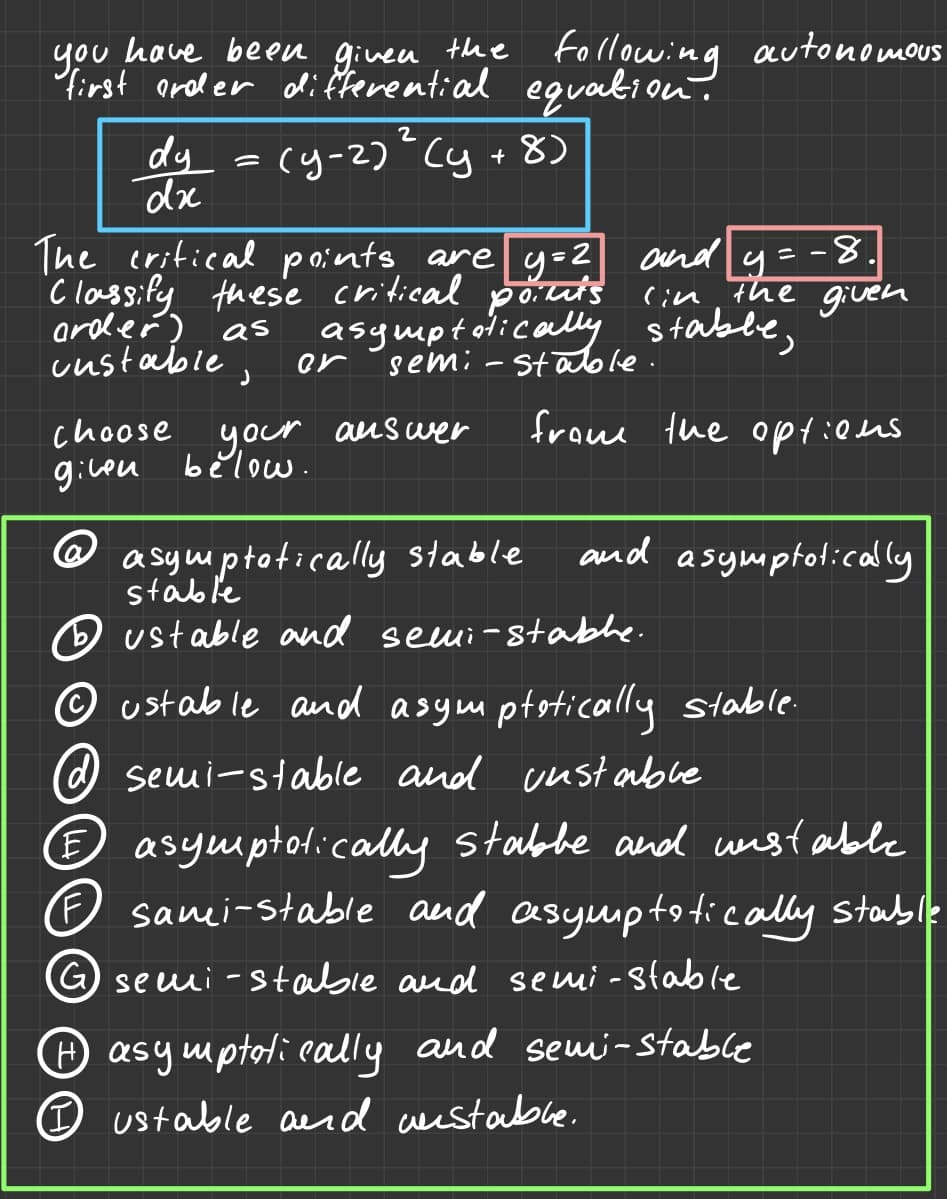 you have been given the following autonomous
first order differential equation.
dy/dx = (y-2)²(y + 8)
The critical points are y=2 and y = -8.
Classify these critical points (in the given
order) as asymptotically stable,
unstable, or semi-stable.
choose your answer from the options
given below.
(a) asymptotically stable and asymptotically
stable
(b) ustable and semi-stable.
(c) ustable and asymptotically stable.
(d) semi-stable and unstable
(E) asymptotically stable and unstable
(F) sami-stable and asymptotically stable
(G) semi-stable and semi-stable
(H) asymptotically and semi-stable
(I) ustable and unstable.